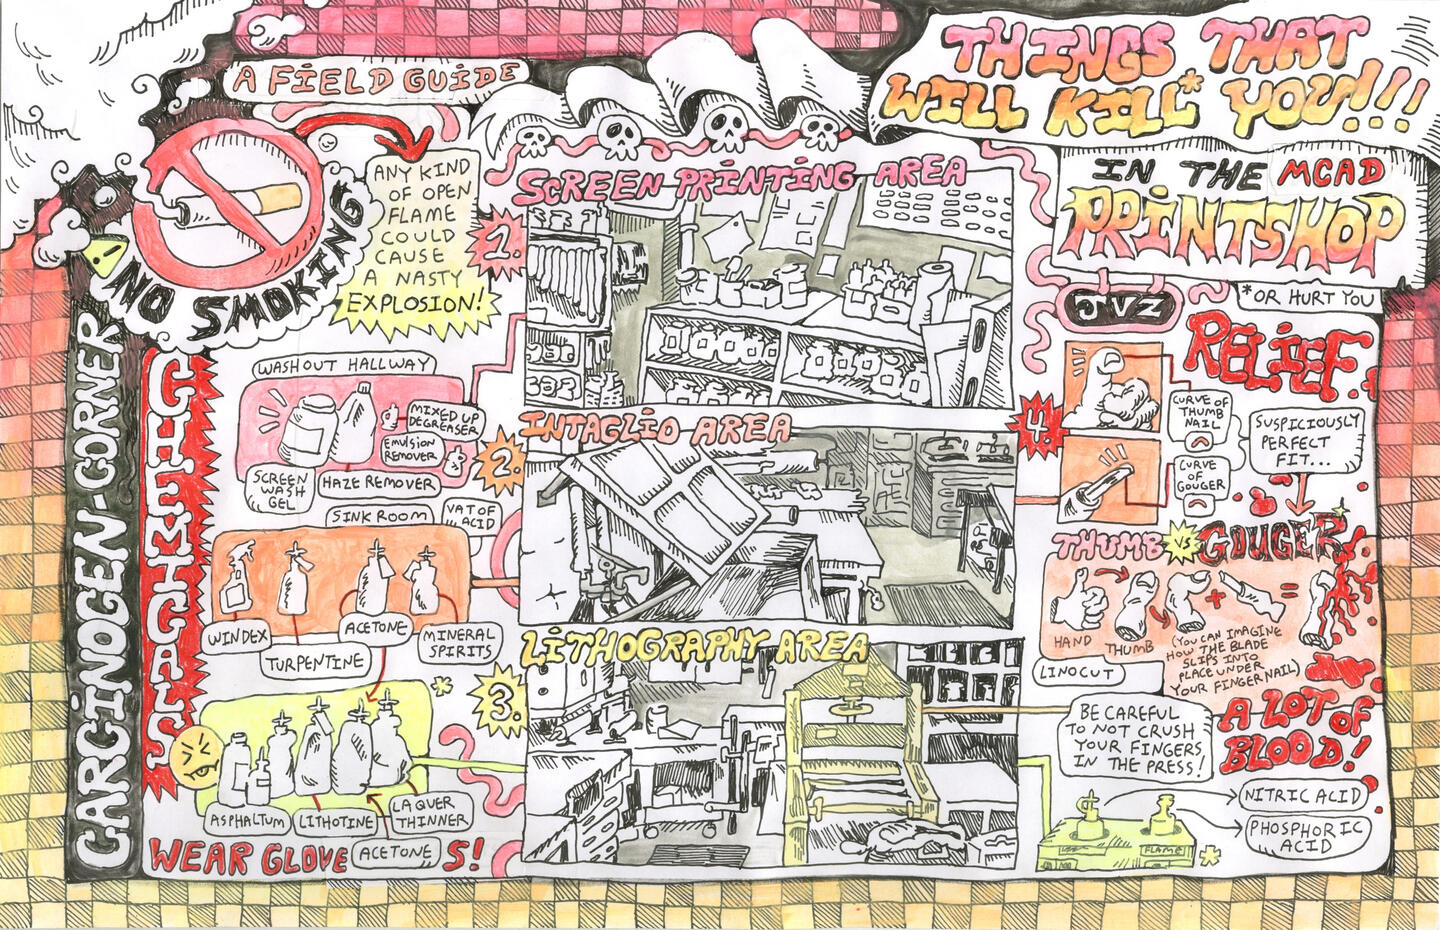 A FIELD GUIDE
THINGS THAT
WILL KILL* YOU!!!
IN THE MCAD
PRINTSHOP
*OR HURT YOU
JVZ
NO SMOKING
ANY KIND
OF OPEN
FLAME
COULD
CAUSE
A NASTY
EXPLOSION!
CARCINOGEN-CORNER
CHEMICALS
WASHOUT HALLWAY
MIXED UP
DEGREASER
EMULSION
REMOVER
SCREEN
WASH
GEL
HAZE REMOVER
SINK ROOM
VAT OF
ACID
WINDEX
TURPENTINE
ACETONE
MINERAL
SPIRITS
*
ASPHALTUM
LITHOTINE
LAQUER
THINNER
ACETONE
WEAR GLOVES!
1.
SCREEN PRINTING AREA
2.
INTAGLIO AREA
3.
LITHOGRAPHY AREA
4.
RELIEF
CURVE OF
THUMB
NAIL
CURVE
OF
GOUGER
SUSPICIOUSLY
PERFECT
FIT...
THUMB VS GOUGER
HAND
THUMB
+
=
LINOCUT
(YOU CAN IMAGINE
HOW THE BLADE
SLIPS INTO
PLACE UNDER
YOUR FINGERNAIL)
A LOT OF
BLOOD!
BE CAREFUL
TO NOT CRUSH
YOUR FINGERS
IN THE PRESS!
NITRIC ACID
PHOSPHORIC
ACID
FLAME
*